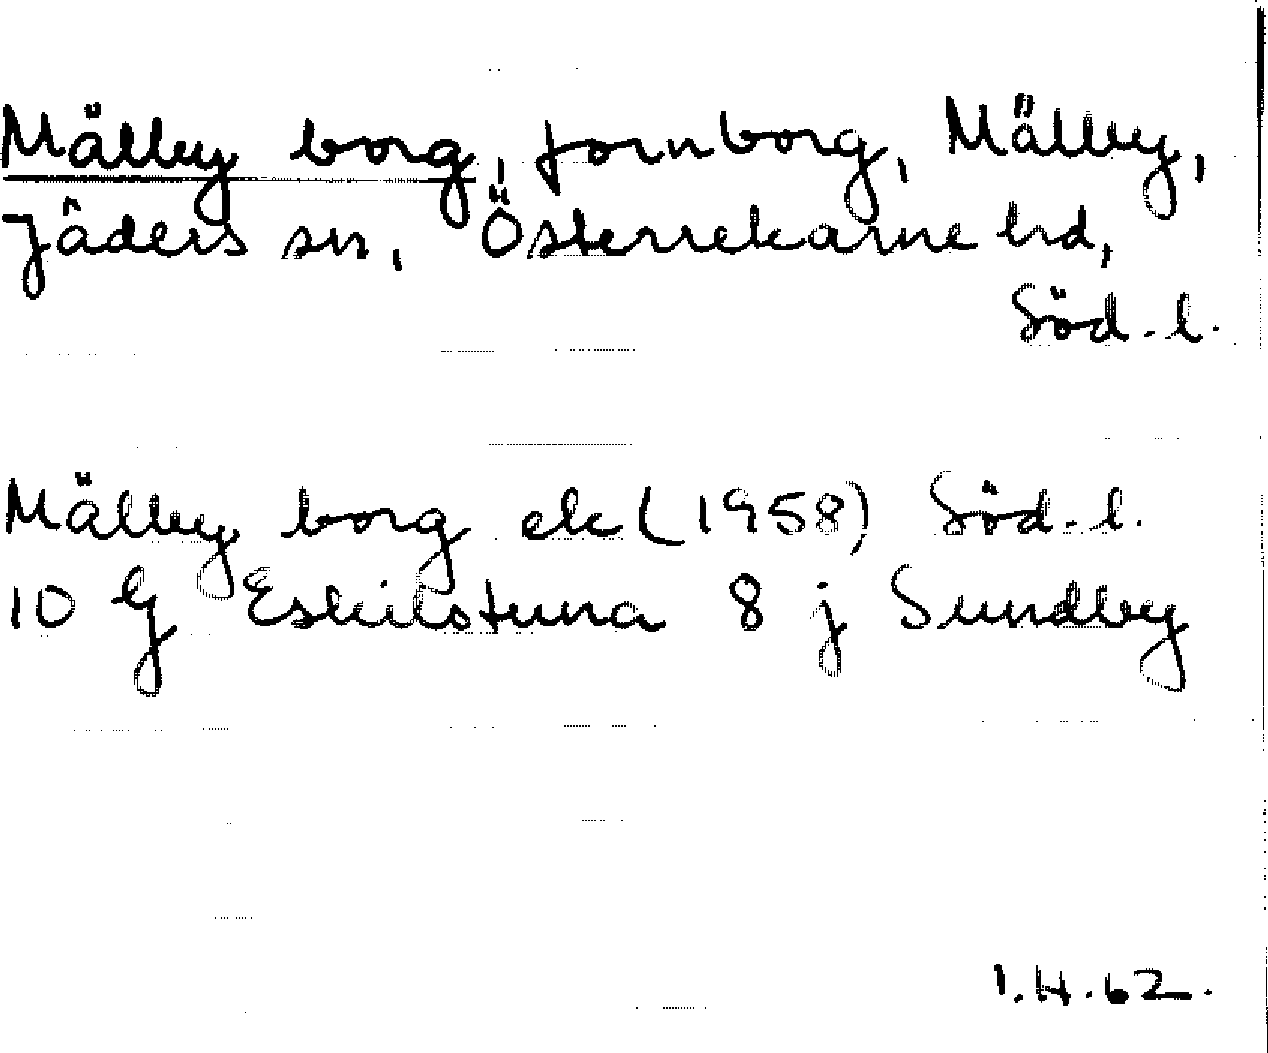 Mälby borg, fornborg, Mälby,
Jäders sn, Österrekarne hd,
Söd.l.
Mälby borg ek (1958) Söd.l.
10 G Eskilstuna 8 j Sundby
I.H.62.